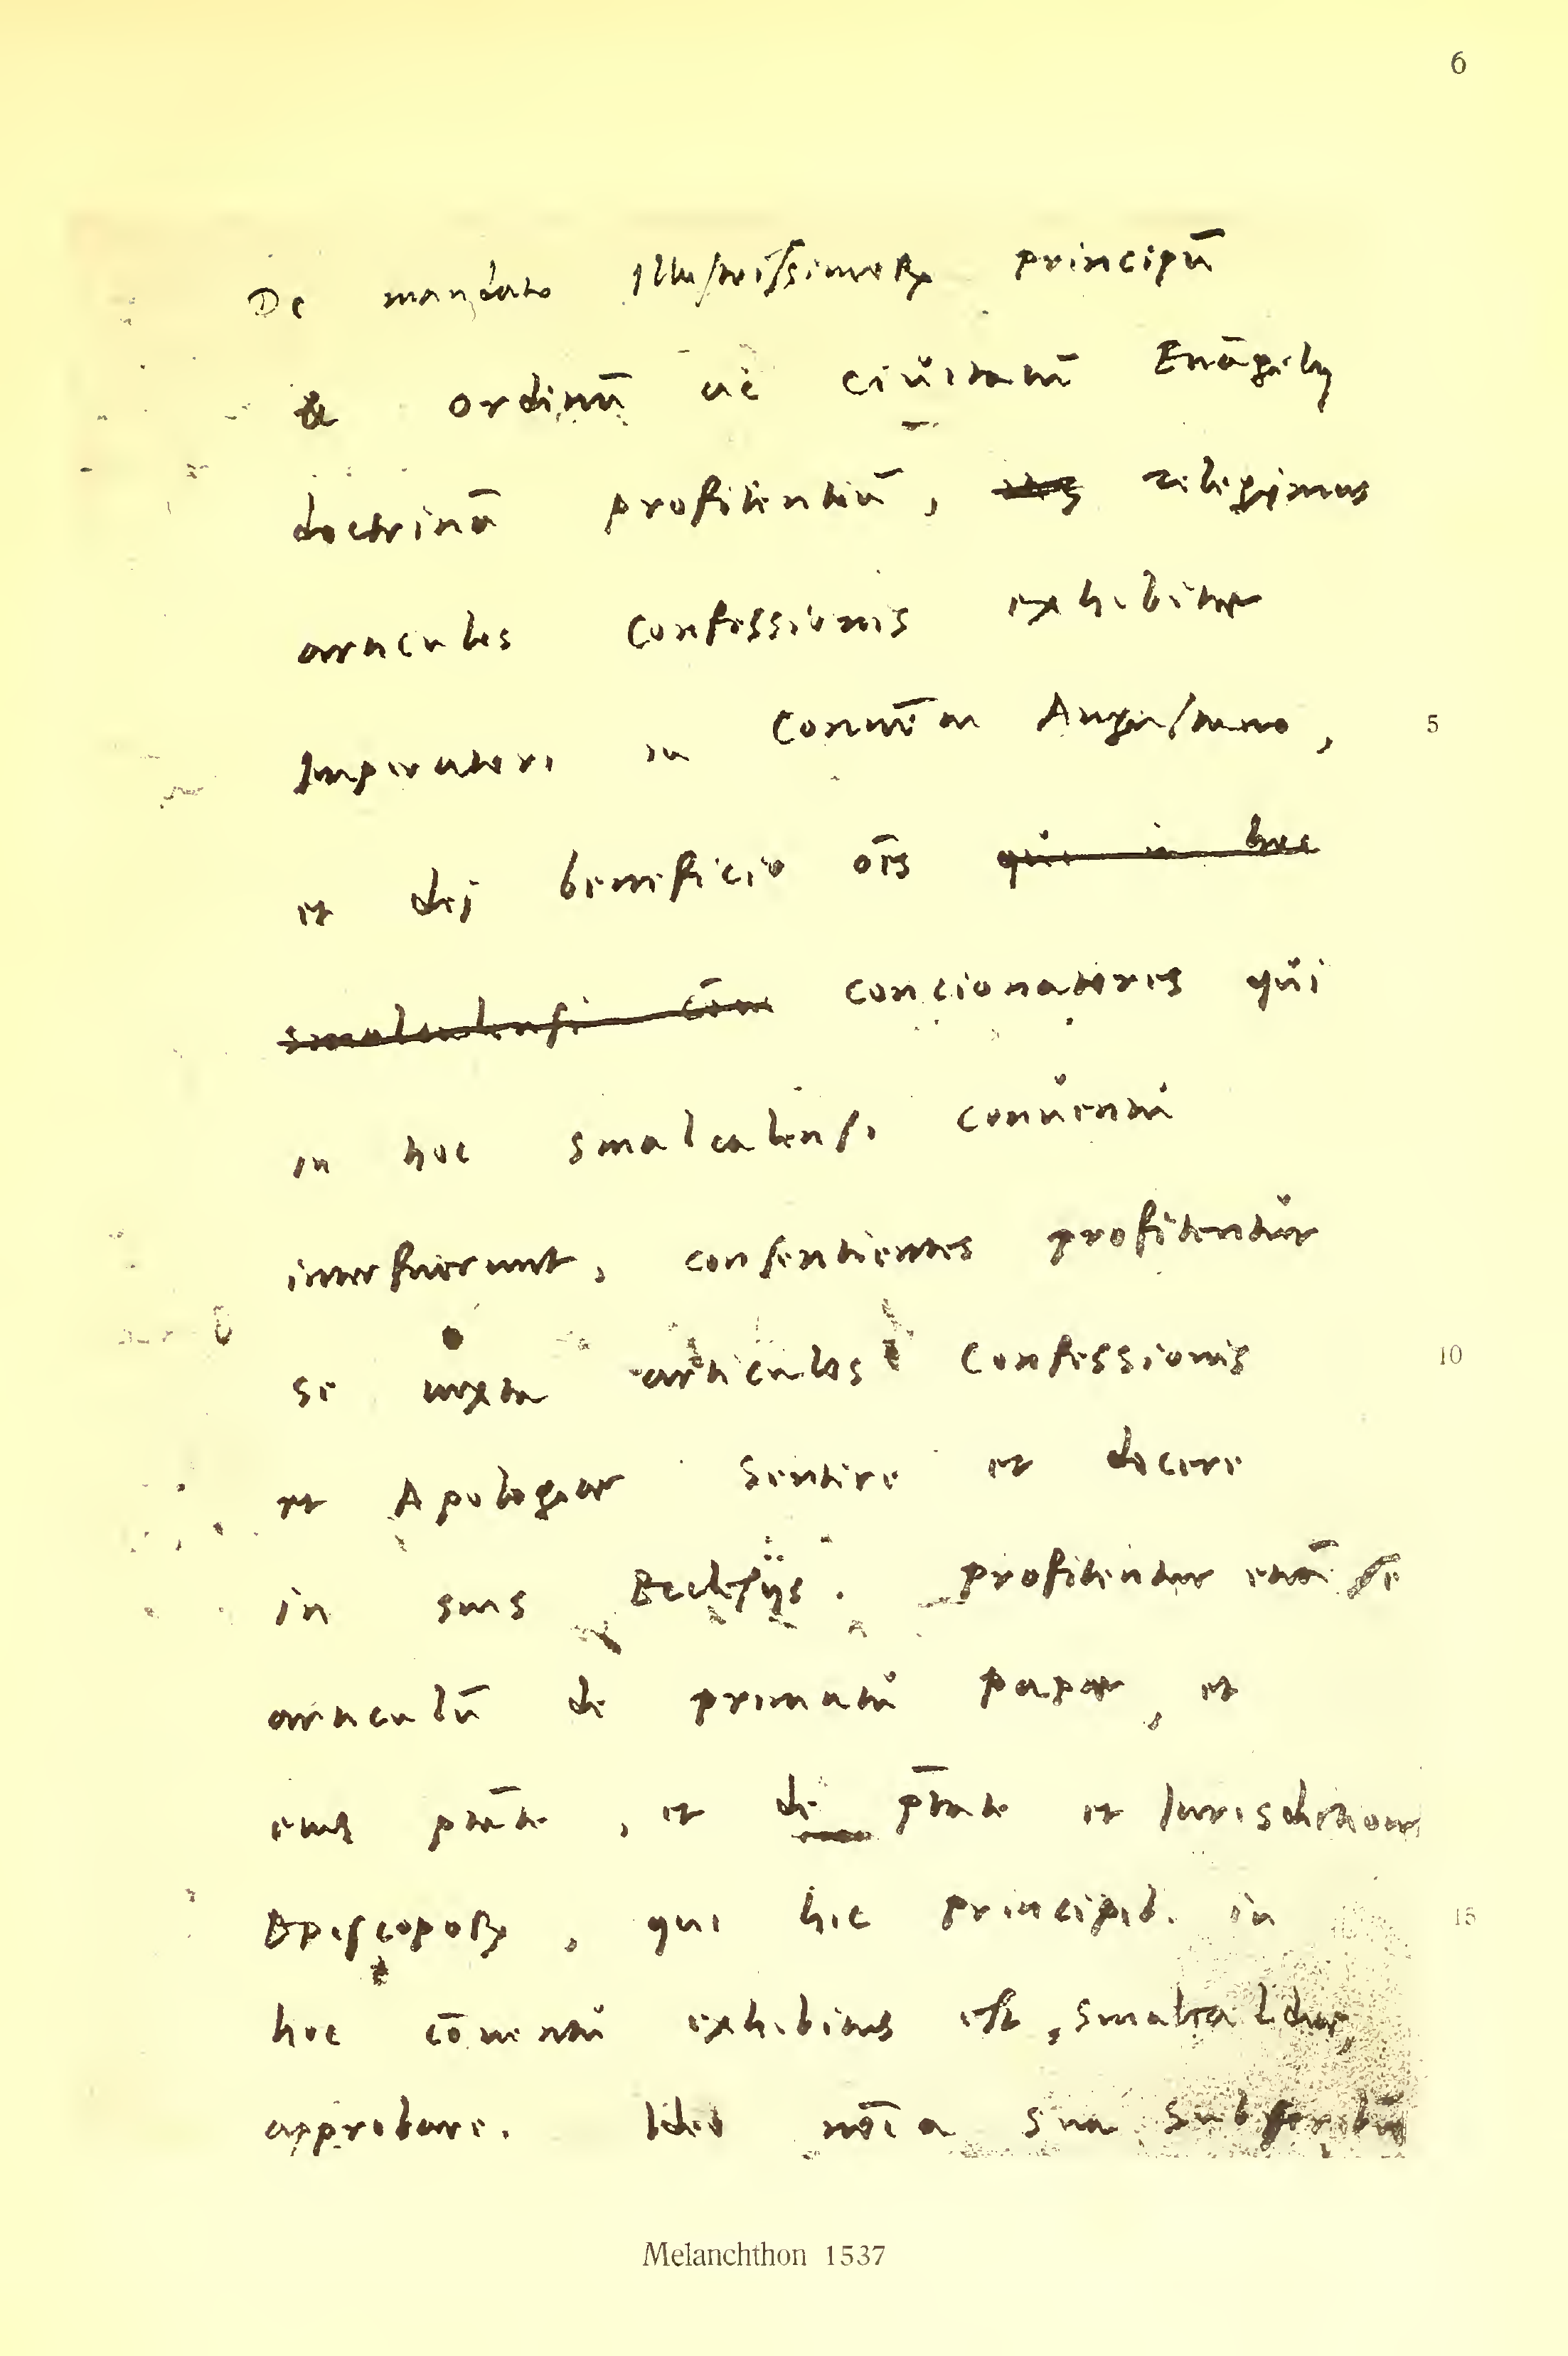 6
De mandato Illustrissimoꝝ principū
& ordinū ac ciuitatū Euāgelij
doctrinā profitentiū, relegimus
articulos Confessionis exhibitæ
Imperatori in Conuētu Augustano, 5
et dei beneficio oēs qui in hoc
smalcaldensi cōue concionatores qui
in hoc smalcaldensi conuentu
interfuerunt, consentientes profitentur
se iuxta articulos Confessionis 10
et Apologiæ sentire et docere
in suis Ecclesijs. profitentur etiā se
articulū de primatu papæ, et
eius ptāte, et de ptāte et Iurisdictione
Episcopoꝝ, qui hic principib. in 15
hoc cōuentu exhibitus est, smalcaldiæ,
approbare. Ideo noīa sua subscribūt
Melanchthon 1537